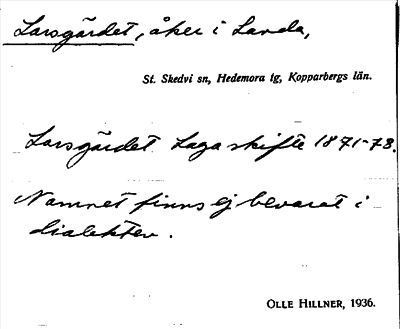 Larsgärdet, åker i Landa,
St. Skedvi sn, Hedemora tg, Kopparbergs län.
Larsgärdet Laga skifte 1871-78.
Namnet finns ej bevarat i
dialekten.
OLLE HILLNER, 1936.